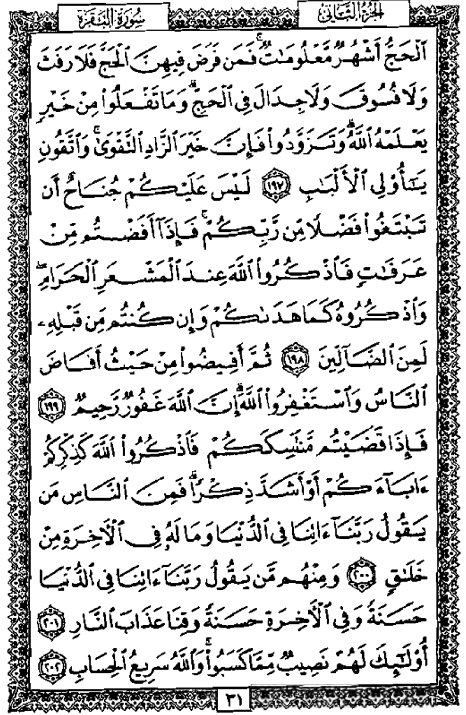 سُورَةُ البَقَرَةِ
الجُزءُ الثَّانِي
ٱلْحَجُّ أَشْهُرٌ مَّعْلُومَٰتٌ ۚ فَمَن فَرَضَ فِيهِنَّ ٱلْحَجَّ فَلَا رَفَثَ
وَلَا فُسُوقَ وَلَا جِدَالَ فِي ٱلْحَجِّ ۗ وَمَا تَفْعَلُوا۟ مِنْ خَيْرٍ
يَعْلَمْهُ ٱللَّهُ ۗ وَتَزَوَّدُوا۟ فَإِنَّ خَيْرَ ٱلزَّادِ ٱلتَّقْوَىٰ ۚ وَٱتَّقُونِ
يَٰٓأُو۟لِي ٱلْأَلْبَٰبِ ١٩٧ لَيْسَ عَلَيْكُمْ جُنَاحٌ أَن
تَبْتَغُوا۟ فَضْلًا مِّن رَّبِّكُمْ ۚ فَإِذَآ أَفَضْتُم مِّنْ
عَرَفَٰتٍ فَٱذْكُرُوا۟ ٱللَّهَ عِندَ ٱلْمَشْعَرِ ٱلْحَرَامِ ۖ
وَٱذْكُرُوهُ كَمَا هَدَىٰكُمْ وَإِن كُنتُم مِّن قَبْلِهِۦ
لَمِنَ ٱلضَّآلِّينَ ١٩٨ ثُمَّ أَفِيضُوا۟ مِنْ حَيْثُ أَفَاضَ
ٱلنَّاسُ وَٱسْتَغْفِرُوا۟ ٱللَّهَ ۚ إِنَّ ٱللَّهَ غَفُورٌ رَّحِيمٌ ١٩٩
فَإِذَا قَضَيْتُم مَّنَٰسِكَكُمْ فَٱذْكُرُوا۟ ٱللَّهَ كَذِكْرِكُمْ
ءَابَآءَكُمْ أَوْ أَشَدَّ ذِكْرًا ۗ فَمِنَ ٱلنَّاسِ مَن
يَقُولُ رَبَّنَآ ءَاتِنَا فِي ٱلدُّنْيَا وَمَا لَهُۥ فِي ٱلْءَاخِرَةِ مِنْ
خَلَٰقٍ ٢٠٠ وَمِنْهُم مَّن يَقُولُ رَبَّنَآ ءَاتِنَا فِي ٱلدُّنْيَا
حَسَنَةً وَفِي ٱلْءَاخِرَةِ حَسَنَةً وَقِنَا عَذَابَ ٱلنَّارِ ٢٠١
أُو۟لَٰٓئِكَ لَهُمْ نَصِيبٌ مِّمَّا كَسَبُوا۟ ۚ وَٱللَّهُ سَرِيعُ ٱلْحِسَابِ ٢٠٢
٣١